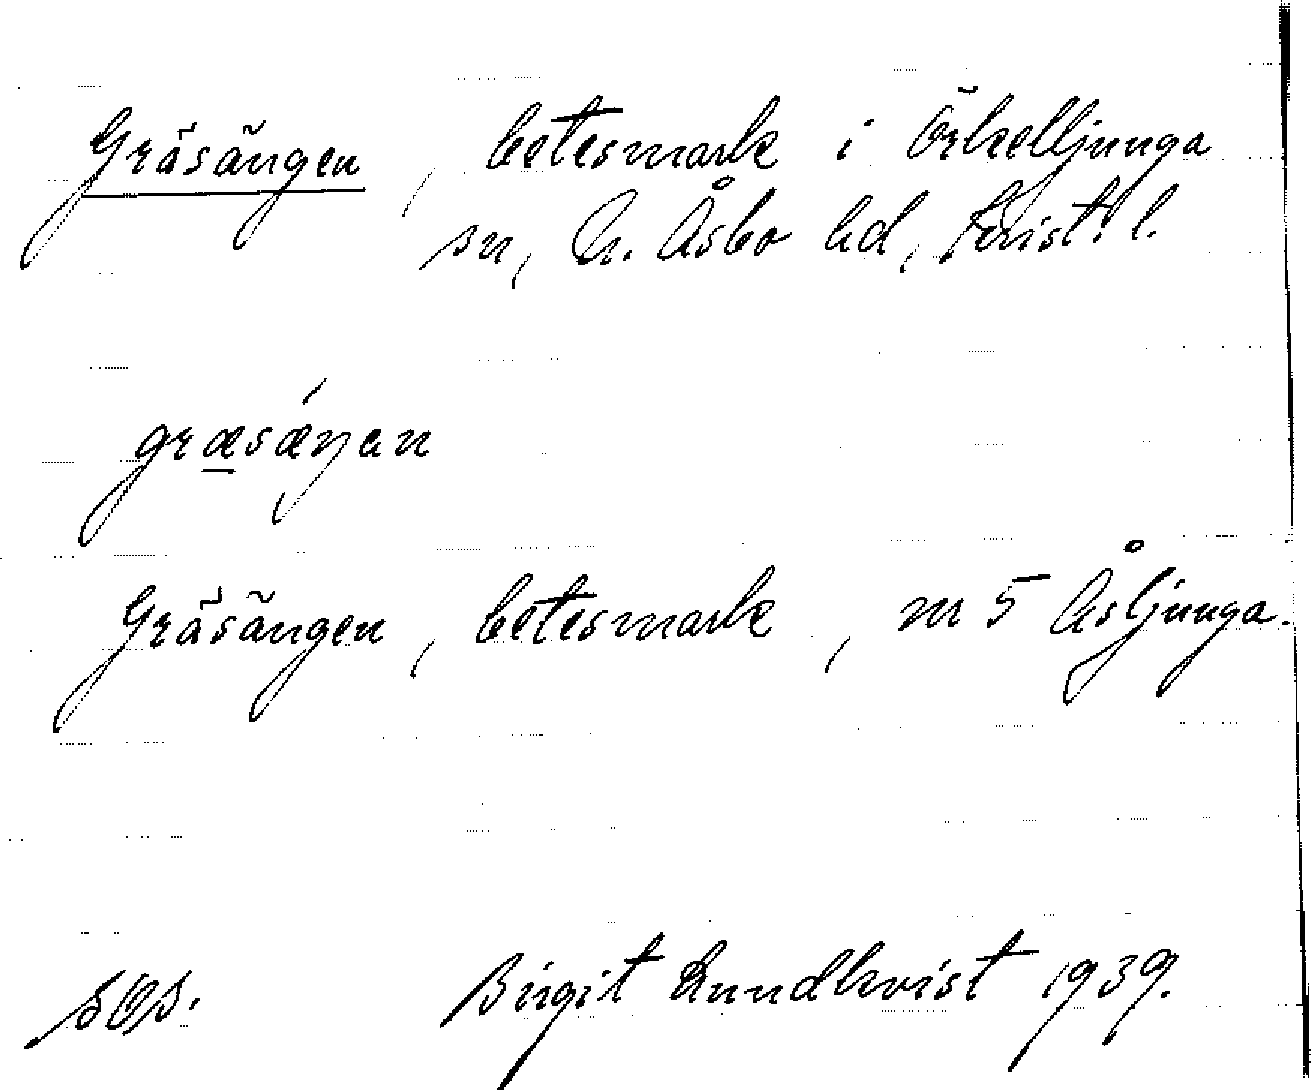 Gräsängen, betesmark i Örkelljunga
sn, N. Åsbo hd, Krist. l.
græsæŋen
Gräsängen, betesmark, nr 5 Åsljunga.
Birgit Lundkvist 1939.